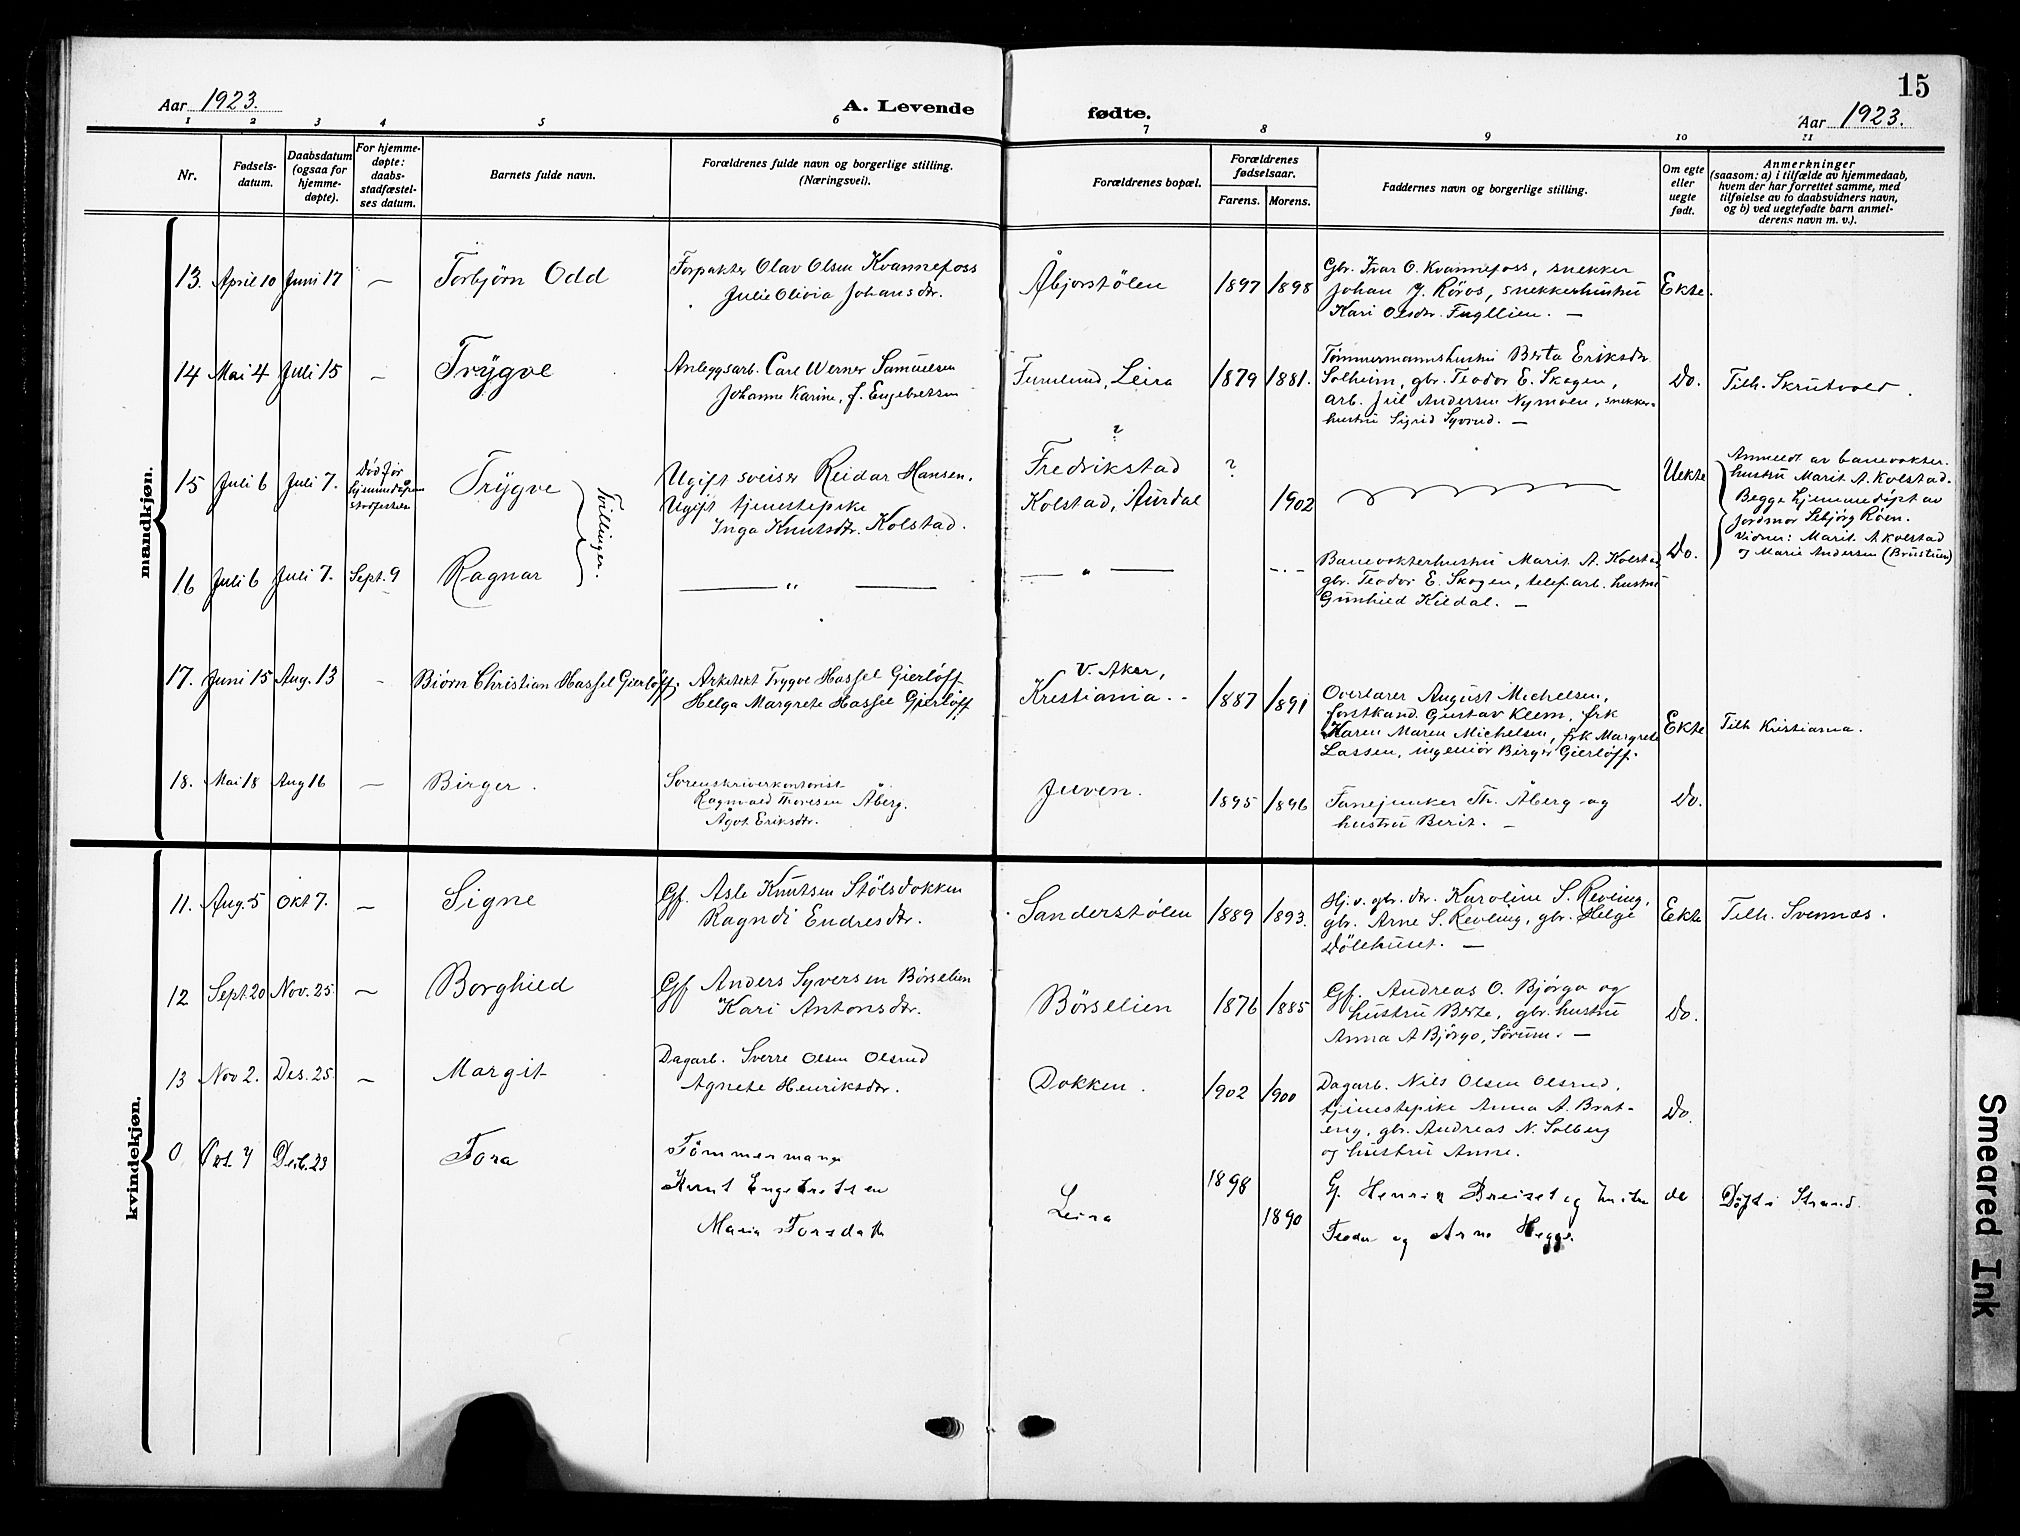 15
Aar 1923.
A. Levende
fødte.
Aar 1923.
1 2 3 4 5 6 7 8 9 10 11
Nr.
Fødsels-
datum.
Daabsdatum
(ogsaa for
hjemme-
døpte).
For hjemme-
døpte:
daabs-
stadfæstel-
ses datum.
Barnets fulde navn.
Forældrenes fulde navn og borgerlige stilling.
(Næringsvei).
Forældrenes bopæl.
Forældrenes
fødselsaar.
Farens. Morens.
Faddernes navn og borgerlige stilling.
Om egte
eller
uegte
født.
Anmerkninger
(saasom: a) i tilfælde av hjemmedaab,
hvem der har forrettet samme, med
tilføielse av to daabsvidners navn,
og b) ved uegtefødte barn anmel-
derens navn m. v.).
mandkjøn.
13. April 10 Juni 17 — Torbjørn Odd
Forpakter Olav Olsen Kvannefoss
Julie Olivia Johansdtr.
Åbjorstölen 1897 1898
Gbr. Ivar O. Kvannefoss, snekker
Johan J. Röros, snekkerhustru
Kari Olsdtr. Fugllien. —
Ekte.
14 Mai 4 Juli 15 — Trygve
Anleggsarb. Carl Werner Samuelsen
Johanne Karine, f. Engebretsen
Furulund, Leira 1879 1881.
Tømmermannshustru Berta Eriksdtr.
Solheim, gbr. Teodor E. Skogen,
arb. Juel Andersen Nymoen, snekker-
hustru Sigrid Syvrud. —
Do. Tilh. Skrutvold.
15 Juli 6 Juli 7.
Död før
hjemmedåpen
stadfestelse
Trygve
Tvillinger.
Ugift sveiser Reidar Hansen.
Ugift tjenestepike
Inga Knutsdtr. Kolstad.
?
Fredrikstad ?
Kolstad, Aurdal 1902
Uekte
Anmeldt av banevokter-
hustru Marit A. Kolstad.
Begge hjemmedöpt av
jordmor Sebjörg Röen.
Vidner: Marit A Kolstad
og Marie Andersen (Brustuen)
16 Juli 6 Juli 7. Sept. 9 Ragnar
— " —
— " — - . -
Banevokterhustru Marit A. Kolstad,
gbr. Teodor E. Skogen, telef.arb. hustru
Gunhild Kildal. —
Do.
17. Juni 15 Aug. 13 - Biörn Christian Hassel Gierlöff.
Arkitekt Trygve Hassel Gierlöff
Helga Margrete Hassel Gierlöff
V. Aker,
Kristiania. 1887 1891
Overlærer August Michelsen,
forstkand. Gustav Klem, frk
Karen Maren Michelsen, frk Margrete
Lassen, ingeniör Birger Gierlöff.
Ekte Tilh Kristiania.
18. Mai 18 Aug 16 — Birger.
Sorenskriverkontorist
Ragnvald Thoresen Åberg.
Ågot Eriksdtr.
Juven. 1895 1896
Fanejunker Th. Åberg og
hustru Berit. —
Do.
kvindekjøn.
11. Aug. 5 Okt 7. — Signe
Gf. Asle Knutsen Stölsdokken
Ragndi Endresdtr.
Sanderstölen 1889 1893.
Hj. v. gbr. dtr. Karoline S. Revling,
gbr. Arne S. Revling, gbr. Helge
Dölehuset. —
Eekte Tilh. Svennes.
12 Sept. 20 Nov. 25 — Borghild
Gf Anders Syversen Børselien
Kari Antonsdtr.
Børselien 1876 1885
Gf. Andreas O. Bjørgo og
hustru Berte, gbr. hustru
Anna A Bjørgo, Sørum. —
Do.
13 Nov 2. Des. 25. — Margit
Dagarb. Sverre Olsen Olsrud
Agnete Henriksdtr.
Dokken. 1902 1900
Dagarb. Nils Olsen Olsrud,
tjenestepike Anna A. Brat-
eng, gbr. Andreas N. Solberg
og hustru Anne.
Do.
0 Okt. 7 Desb. 23 Tora
Tömmermann
Knut Engebretsen
Maria Torsdatt
Leira 1898
1890
Gf. Henrik Breiset og hustru
Teodor og Arne Hegge.
do Døpt i Strand.
Smeared Ink